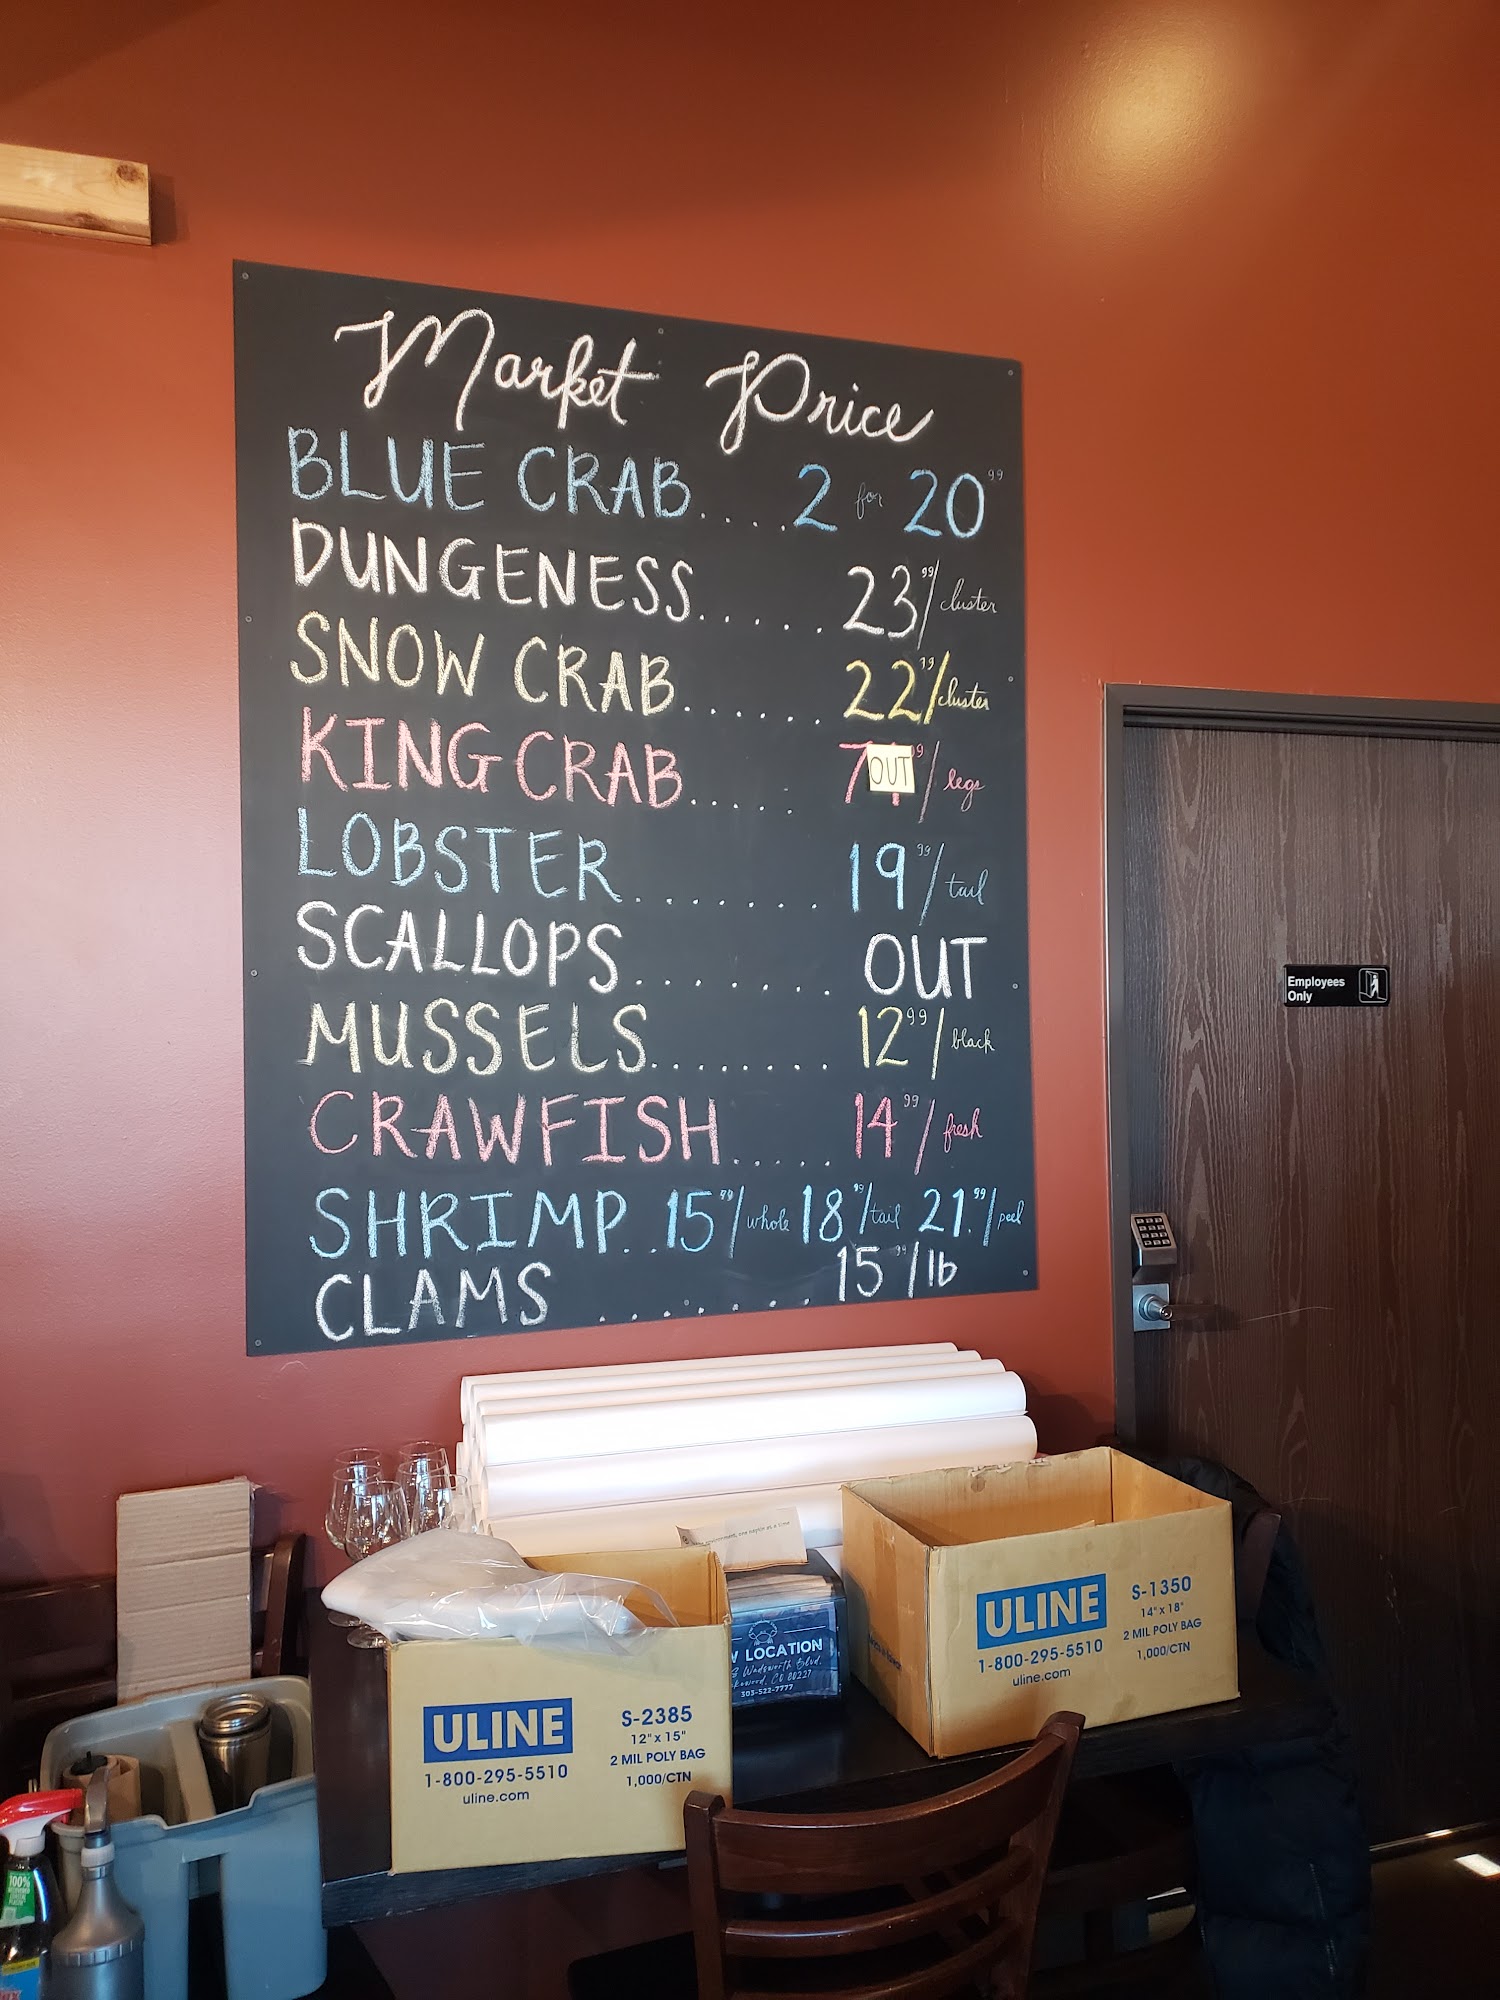 Market Price
BLUE CRAB.....2 for 20 99
DUNGENESS...... 23 99/cluster
SNOW CRAB...... 22 99/cluster
KING CRAB..... 7 OUT 99/legs
LOBSTER....... 19 99/tail
SCALLOPS....... OUT
MUSSELS....... 12 99/black
CRAWFISH..... 14 99/fresh
SHRIMP...15 99/whole 18 99/tail 21.99/peel
CLAMS ....... 15 99/lb
Employees
Only
one
at a time
LOCATION
Wadsworth Blvd.
CO 80227
303-522-7777
ULINE
1-800-295-5510
uline.com
S-2385
12" x 15"
2 MIL POLY BAG
1,000/CTN
ULINE
1-800-295-5510
uline.com
S-1350
14" x 18"
2 MIL POLY BAG
1,000/CTN
100%